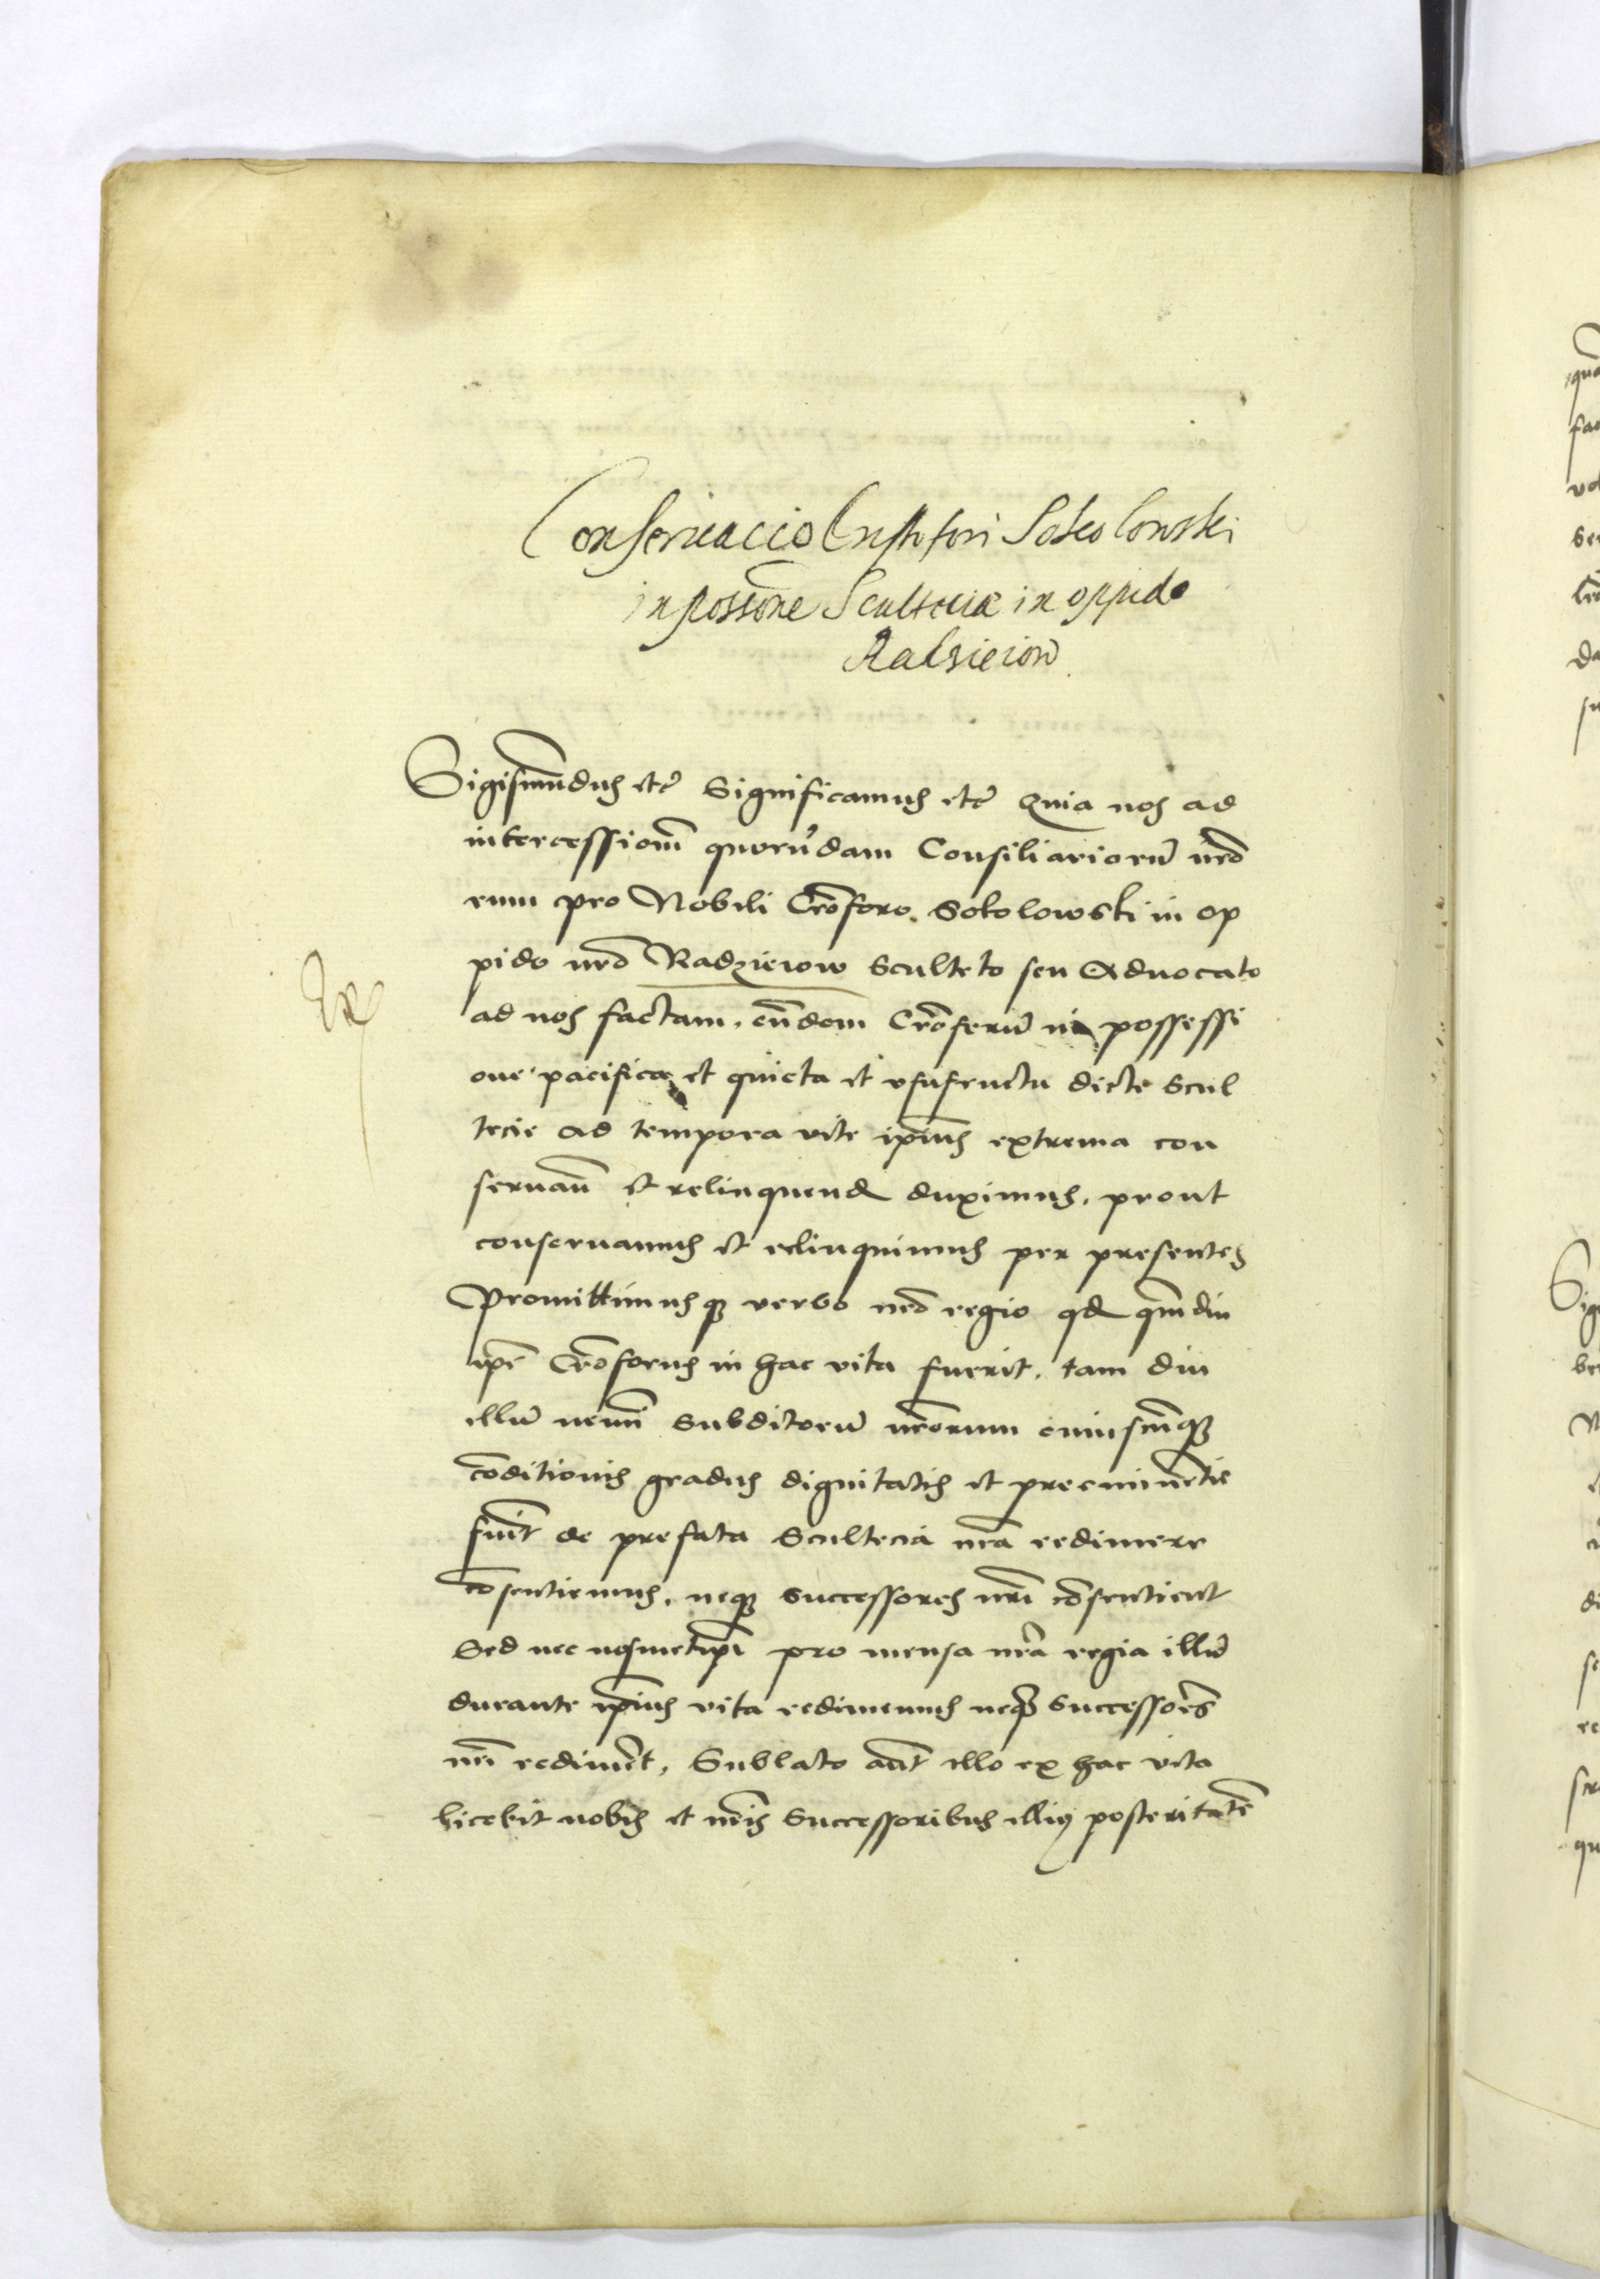 Conservacio Cristofori Sokolowski
in possione Scultecie in oppido
Radzieiow
Sigismundus etc Significamus etc Quia nos ad
intercessionem quorundam Consiliariorum nostro
rum pro Nobili Croforo Sokolowski in op
pido nro Radzieiow Sculteto seu Advocato
ad nos factam, eundem Croferum in possessi
one pacifica et quieta et usufructu dicte Scul
tecie ad tempora vite ipsius extrema con
servandum et relinquendum duximus, prout
conservamus et relinquimus per presentes
Promittimusque verbo nro regio quod quamdiu
ipse Croforus in hac vita fuerit, tam diu
illum nemini Subditorum nrorum cuiuscunque
conditionis gradus dignitatis et preeminentie
fuerit de prefata Scultecia nra redimere
consentiemus, neque successores nri consentient
Sed nec nosmetipsi pro mensa nra regia illum
durante ipsius vita redimemus neque Successores
nri rediment, Sublato autem illo ex hac vita
licebit nobis et nris Successoribus illius posteritatem